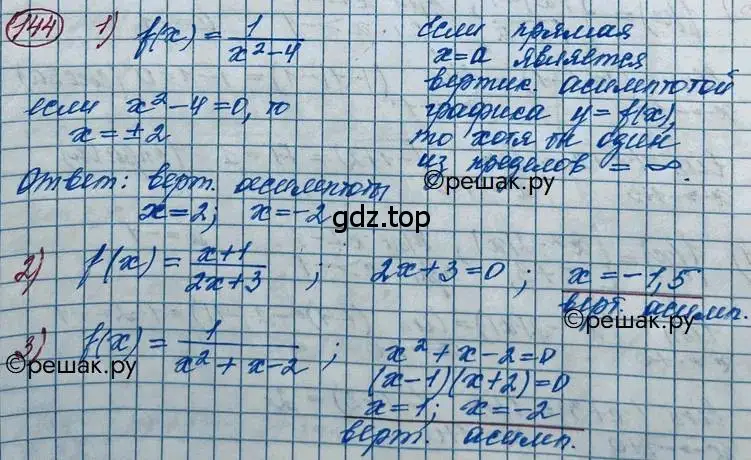 144 1) f(x) = 1/(x² - 4)
если прямая
x = a является
вертик. асимптотой
графика y = f(x),
то хотя бы один
из пределов = ∞.
©решак.ру
если x² - 4 = 0, то
x = ±2
Ответ: верт. асимптоты
x = 2; x = -2
gdz.top
2) f(x) = (x+1)/(2x+3) ; 2x+3 = 0 ; x = -1,5
верт. асимп.
©решак.ру
3) f(x) = 1/(x² + x - 2) ; x² + x - 2 = 0
©решак.ру
(x-1)(x+2) = 0
x = 1; x = -2
верт. асимп.